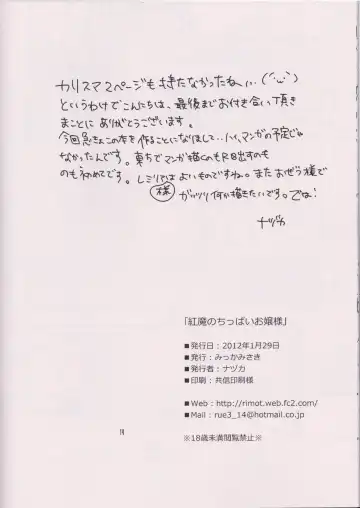 カリスマ2ページも持たなかったね…(´･ω･`)
というわけでこんにちは、最後までお付き合い頂き
まことにありがとうございます。
今回急きょこの本を作ることになりまして…ハイ、マンガの予定じゃ
なかったんです。東方でマンガ描くのもR18出すのも
のも初めてです。レミリアはよいものですね。またお嬢様で
様
ガッツリ何か描きたいです。では!
ナヅカ
「紅魔のちっぱいお嬢様」
■発行日:2012年1月29日
■発行:みっかみさき
■発行者:ナヅカ
■印刷:共信印刷様
■Web:http://rimot.web.fc2.com/
■Mail:rue3_14@hotmail.co.jp
※18歳未満閲覧禁止※